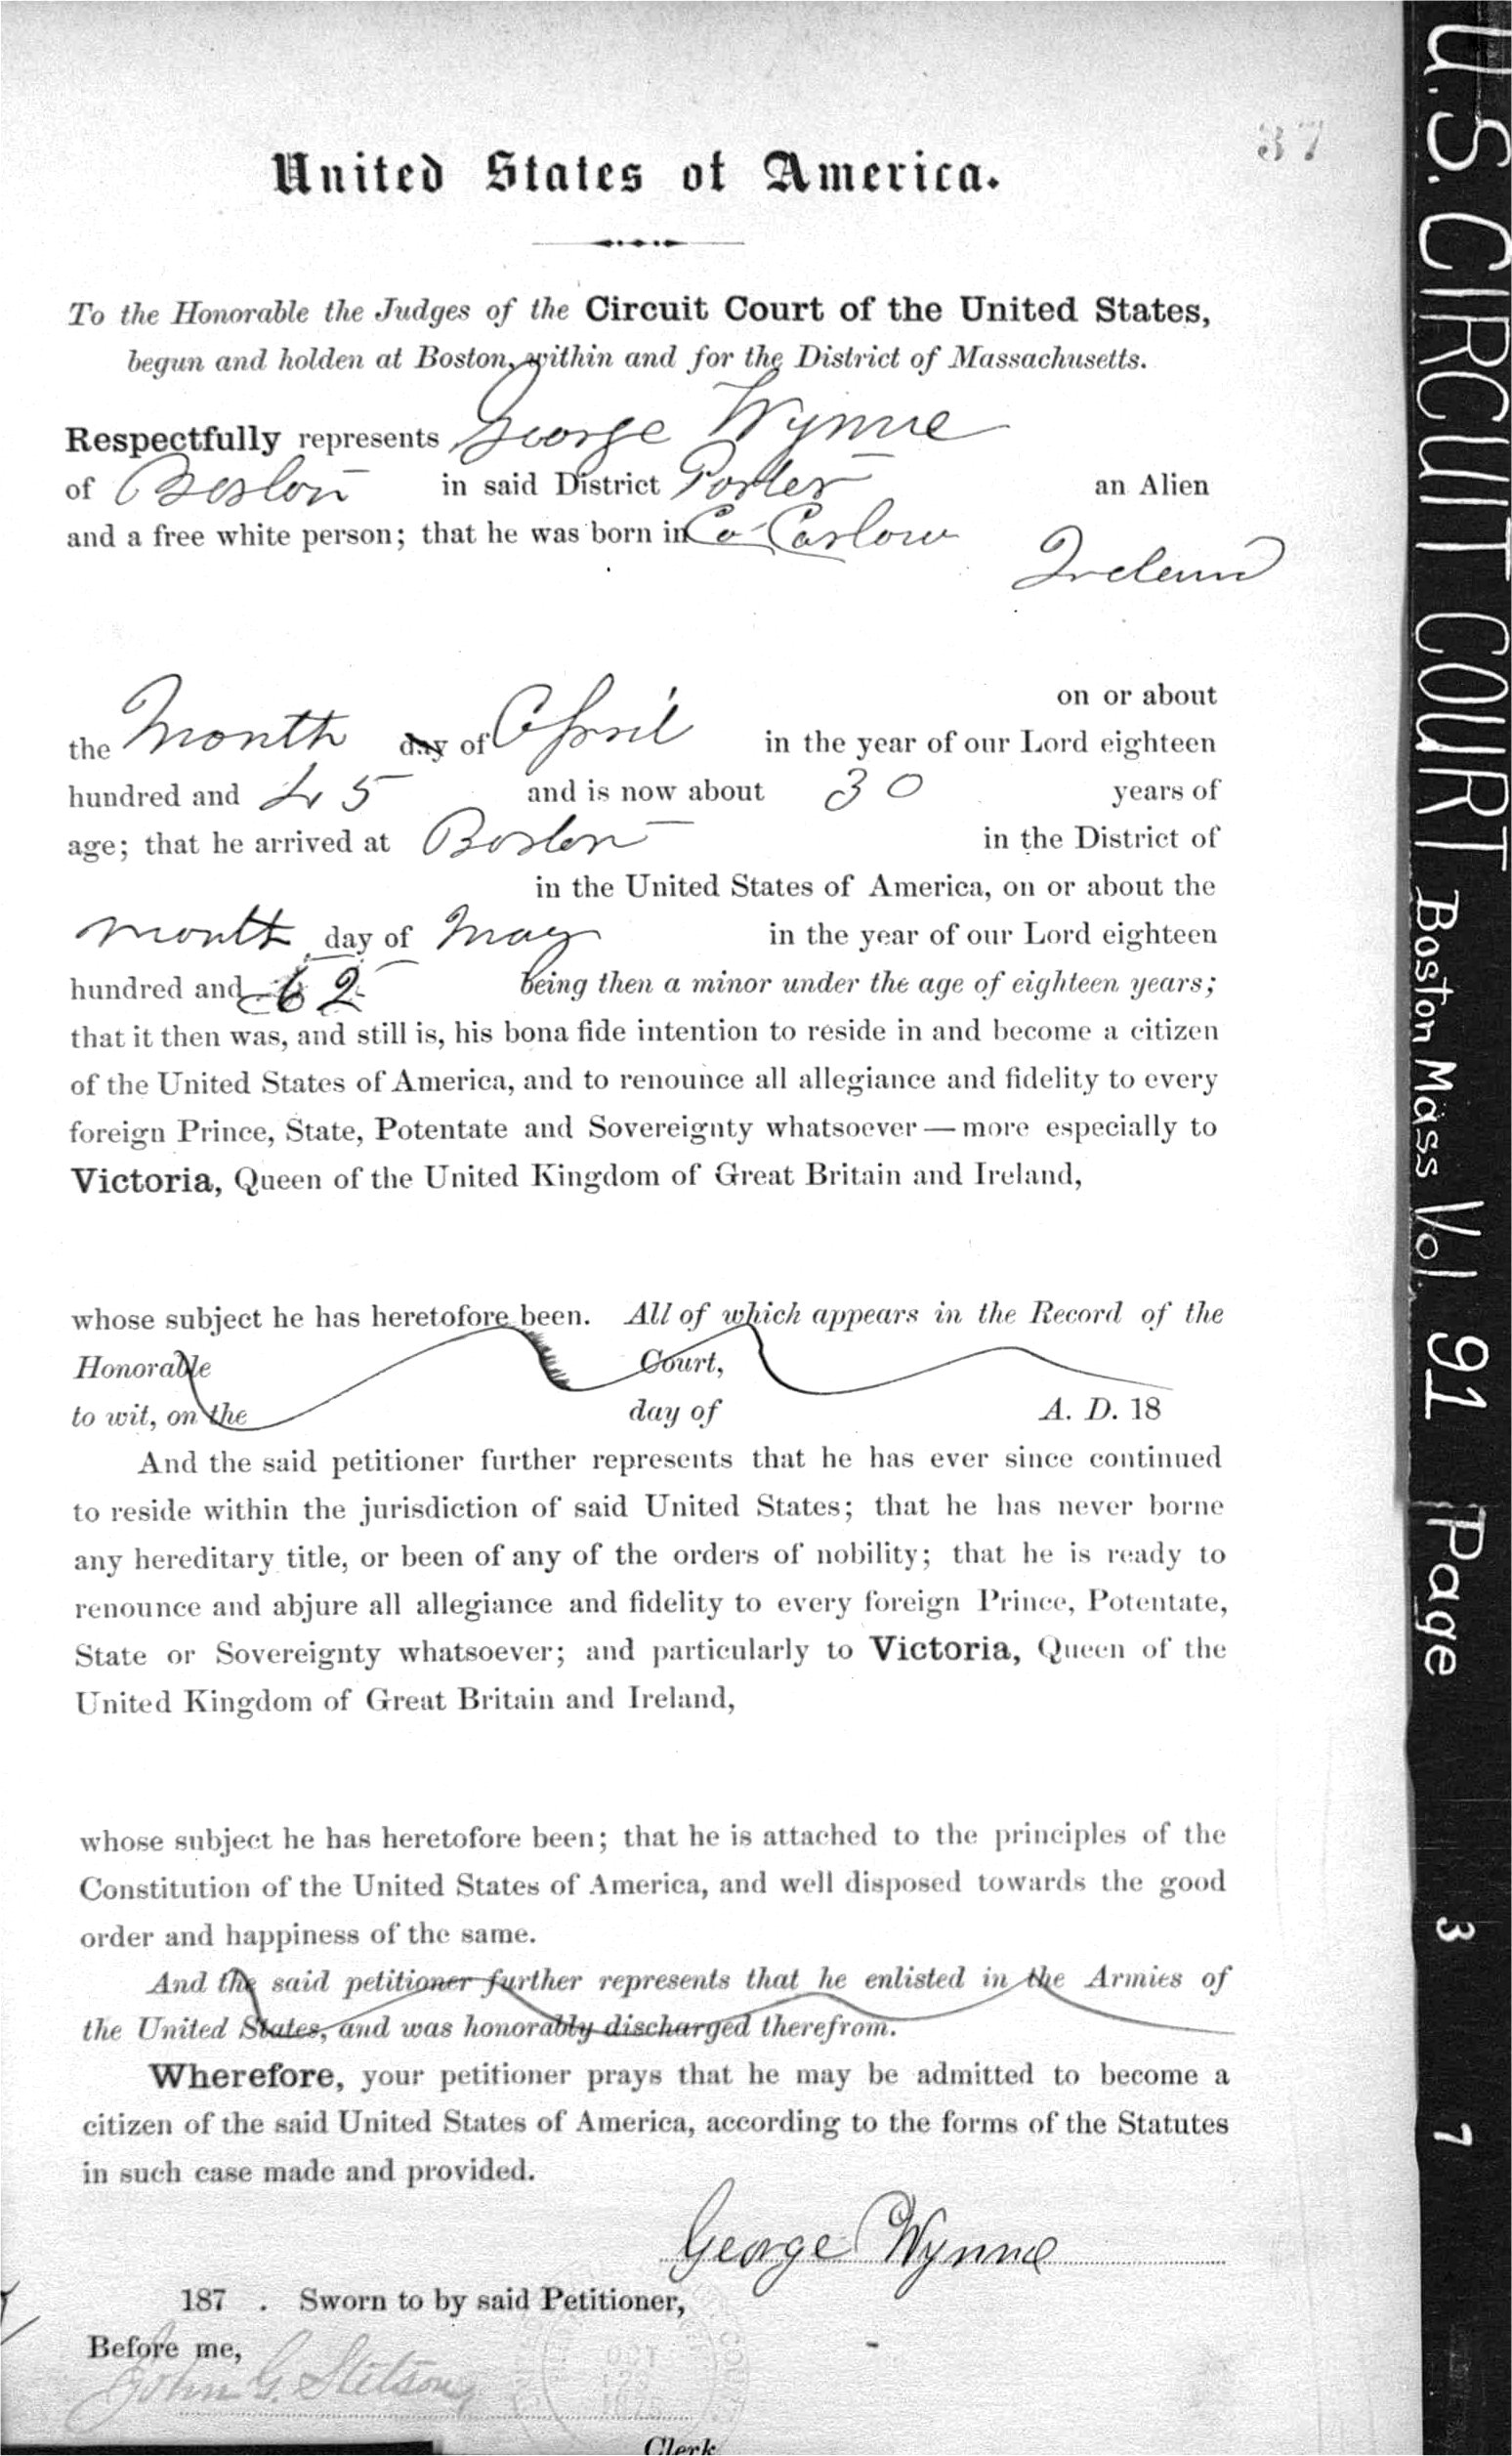 37
United States of America.
To the Honorable the Judges of the Circuit Court of the United States,
begun and holden at Boston, within and for the District of Massachusetts.
Respectfully represents George Wynne
of Boston in said District Porter an Alien
and a free white person; that he was born in Co Carlow
Ireland
on or about
the Month day of April in the year of our Lord eighteen
hundred and 45 and is now about 30 years of
age; that he arrived at Boston in the District of
in the United States of America, on or about the
month day of May in the year of our Lord eighteen
hundred and 62 being then a minor under the age of eighteen years;
that it then was, and still is, his bona fide intention to reside in and become a citizen
of the United States of America, and to renounce all allegiance and fidelity to every
foreign Prince, State, Potentate and Sovereignty whatsoever — more especially to
Victoria, Queen of the United Kingdom of Great Britain and Ireland,
whose subject he has heretofore been. All of which appears in the Record of the
Honorable Court,
to wit, on the day of A. D. 18
And the said petitioner further represents that he has ever since continued
to reside within the jurisdiction of said United States; that he has never borne
any hereditary title, or been of any of the orders of nobility; that he is ready to
renounce and abjure all allegiance and fidelity to every foreign Prince, Potentate,
State or Sovereignty whatsoever; and particularly to Victoria, Queen of the
United Kingdom of Great Britain and Ireland,
whose subject he has heretofore been; that he is attached to the principles of the
Constitution of the United States of America, and well disposed towards the good
order and happiness of the same.
And the said petitioner further represents that he enlisted in the Armies of
the United States, and was honorably discharged therefrom.
Wherefore, your petitioner prays that he may be admitted to become a
citizen of the said United States of America, according to the forms of the Statutes
in such case made and provided.
George Wynne
187 . Sworn to by said Petitioner,
Before me,
John G. Stetson
Clerk
U.S. CIRCUIT COURT Boston Mass Vol. 91 Page 37